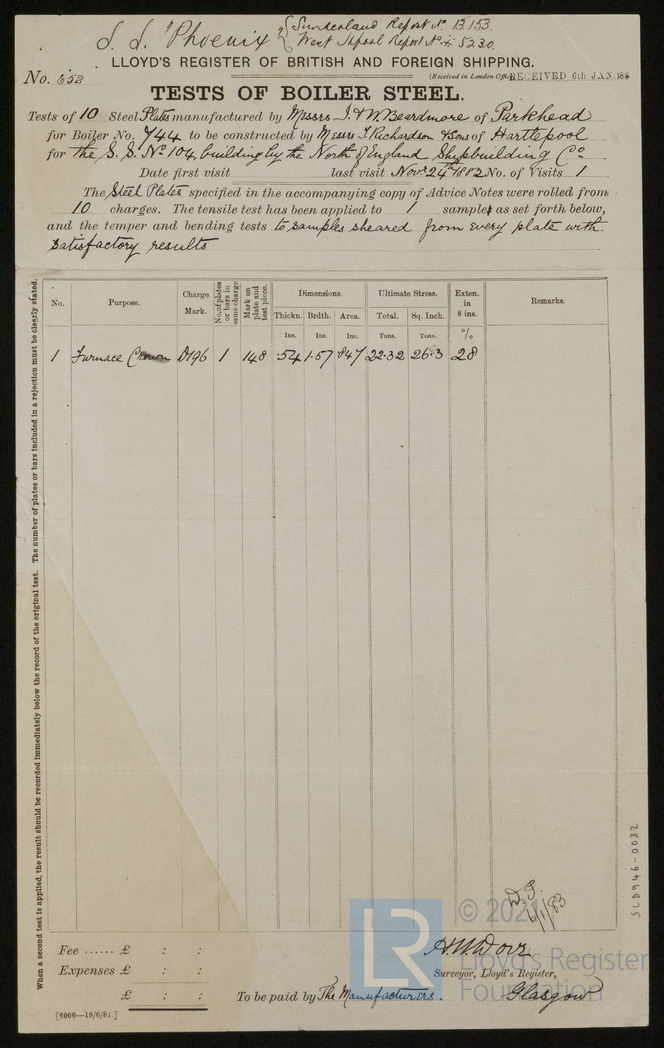 S. S. "Phoenix" { Sunderland Report No. 13153.
West Hpool Report No. 5230.
LLOYD'S REGISTER OF BRITISH AND FOREIGN SHIPPING.
No. 652
(Received in London Office RECEIVED 6th JAN. 188
TESTS OF BOILER STEEL.
Tests of 10 Steel Plates manufactured by Messrs J. & W. Beardmore of Parkhead
for Boiler No. 744 to be constructed by Messrs T. Richardson & Sons of Hartlepool
for The S. S. No. 104, building by the North of England Shipbuilding Co.
Date first visit last visit Novr. 24th 1882 No. of Visits 1
The Steel Plates specified in the accompanying copy of Advice Notes were rolled from
10 charges. The tensile test has been applied to 1 samples as set forth below,
and the temper and bending tests to samples sheared from every plate with
satisfactory results
No. Purpose. Charge Mark. No. of plates or bars in same charge Mark on plate and test piece. Dimensions. Ultimate Stress. Exten. in 8 ins. Remarks.
Thickn. Brdth. Area. Total. Sq. Inch.
Ins. Ins. Ins. Tons. Tons. %
1 Furnace Crown D196 1 148 .54 1.57 .847 22.32 26.3 28
When a second test is applied, the result should be recorded immediately below the record of the original test. The number of plates or bars included in a rejection must be clearly stated.
SLD946-0032
6/1/83
© 2021
LR
Lloyd's Register
Foundation
Fee ...... £ : :
Expenses £ : :
£ : :
Surveyor, Lloyd's Register,
To be paid by The Manufacturers. Glasgow
[6000—18/6/81.]